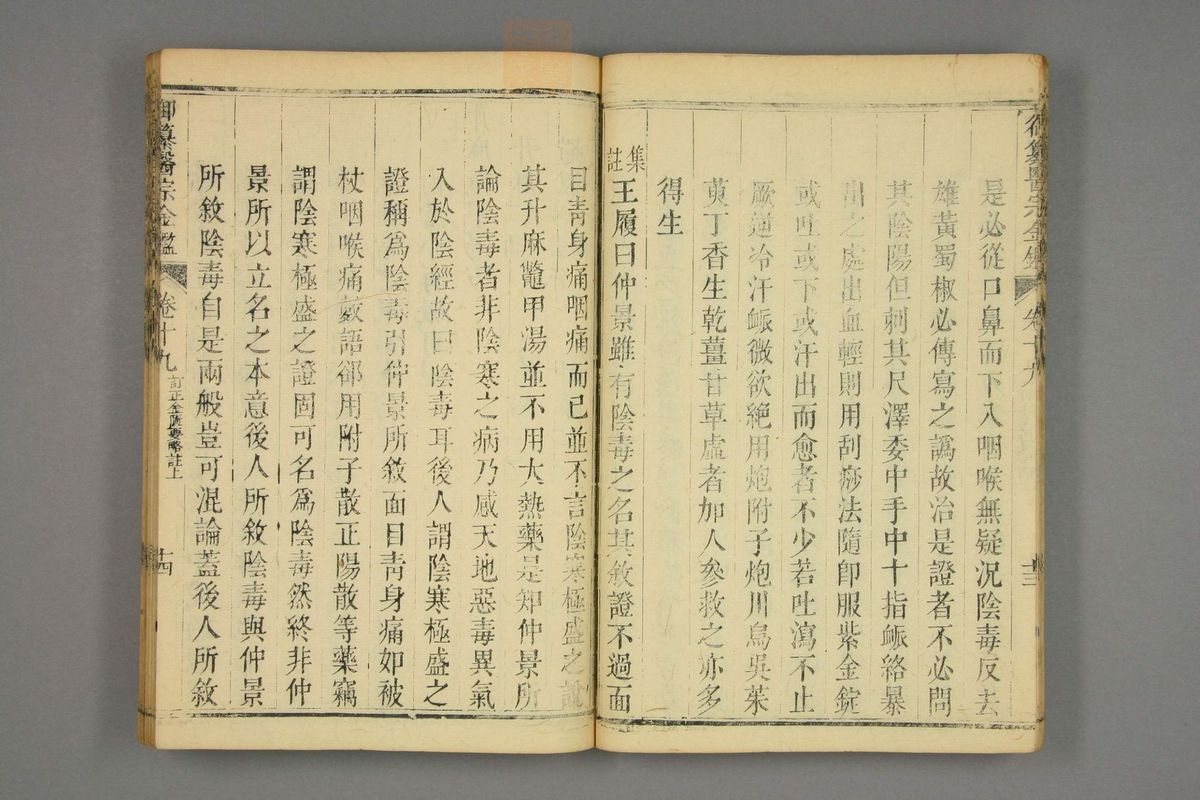 御纂醫宗金鑑
卷十九
十三
是必從口鼻而下入咽喉無疑況陰毒反去
雄黃蜀椒必傳寫之譌故治是證者不必問
其陰陽但刺其尺澤委中手中十指脈絡暴
出之處出血輕則用刮痧法隨即服紫金錠
或吐或下或汗出而愈者不少若吐瀉不止
厥逆冷汗脈微欲絕用炮附子炮川烏吳茱
萸丁香生乾薑甘草虛者加人參救之亦多
得生
集註王履曰仲景雖有陰毒之名其敘證不過面
目青身痛咽痛而已並不言陰寒極盛之說
其升麻鼈甲湯並不用大熱藥是知仲景所
論陰毒者非陰寒之病乃感天地惡毒異氣
入於陰經故曰陰毒耳後人謂陰寒極盛之
證稱爲陰毒引仲景所敘面目青身痛如被
杖咽喉痛數語卻用附子散正陽散等藥竊
謂陰寒極盛之證固可名爲陰毒然終非仲
景所以立名之本意後人所敘陰毒與仲景
所敘陰毒自是兩般豈可混論蓋後人所敘
御纂醫宗金鑑
卷十九
訂正金匱要略註上
十四